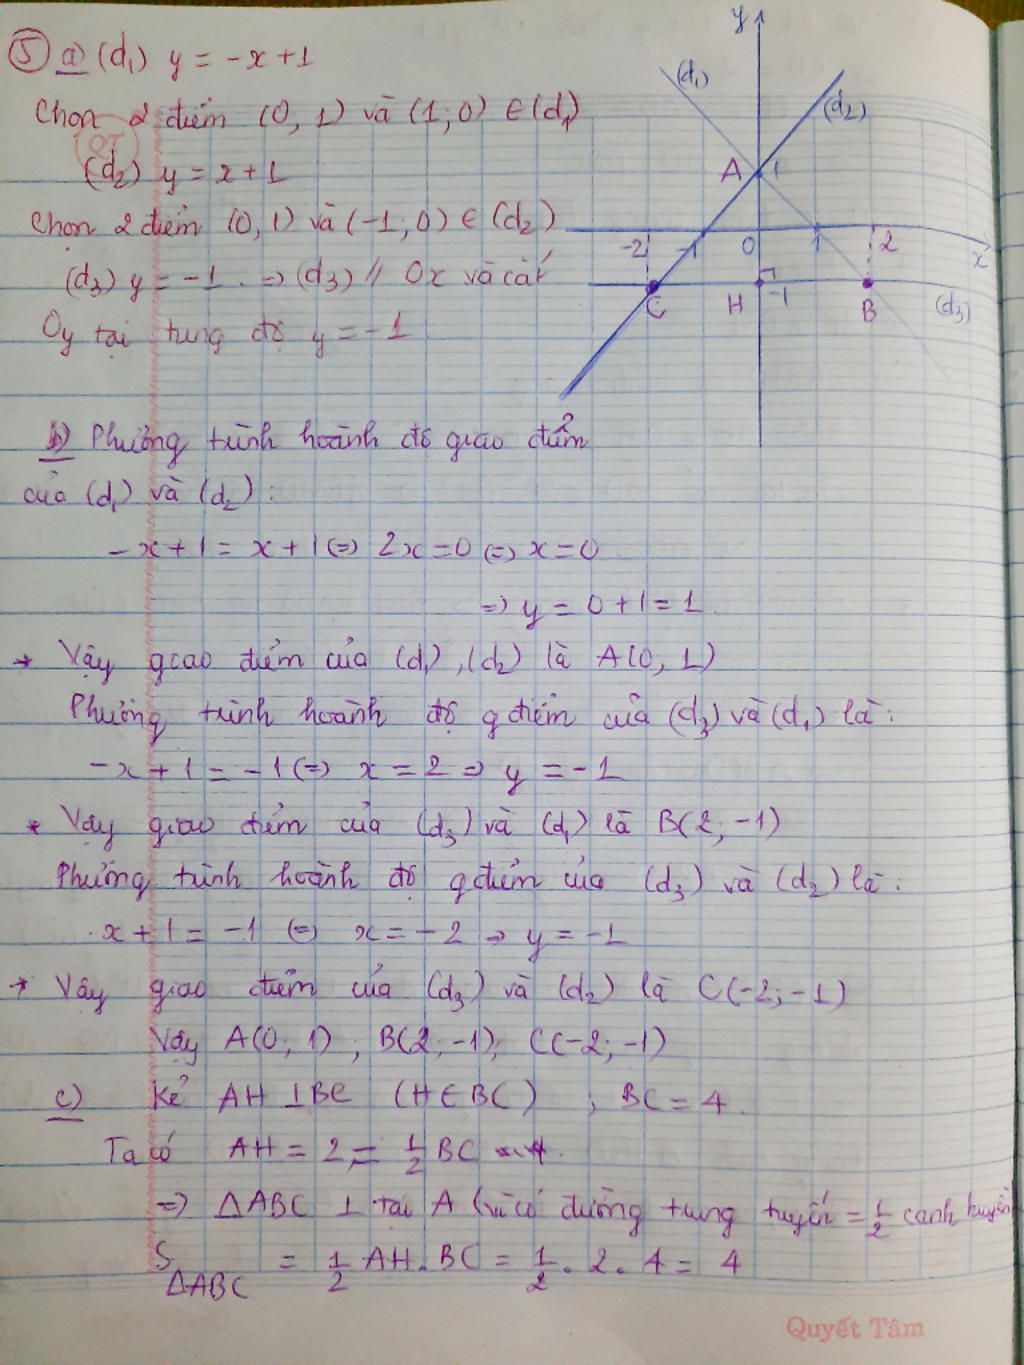 ⑤ a) (d₁) y = -x+1
Chọn 2 điểm (0, 1) và (1; 0) ∈ (d₁)
(d₂) y = x+1
Chọn 2 điểm (0, 1) và (-1; 0) ∈ (d₂)
(d₃) y = -1. => (d₃) // Ox và cắt
Oy tại tung độ y = -1
y
(d₁)
(d₂)
A 1
-2 -1 0 1 2 x
C H -1 B (d₃)
b) Phương trình hoành độ giao điểm
của (d₁) và (d₂):
-x+1 = x+1 (=) 2x=0 (=) x=0
=> y = 0+1 = 1
* Vậy giao điểm của (d₁), (d₂) là A(0, 1)
Phương trình hoành độ g điểm của (d₃) và (d₁) là:
-x+1 = -1 (=) x = 2 => y = -1
* Vậy giao điểm của (d₃) và (d₁) là B(2; -1)
Phương trình hoành độ g điểm của (d₃) và (d₂) là:
x+1 = -1 (=) x = -2 => y = -1
* Vậy giao điểm của (d₃) và (d₂) là C(-2; -1)
Vậy A(0; 1), B(2; -1); C(-2; -1)
c) Kẻ AH ⊥ BC (H ∈ BC), BC = 4.
Ta có AH = 2 = 1/2 BC
=> ΔABC ⊥ tại A (vì có đường trung tuyến = 1/2 cạnh huyền
S ΔABC = 1/2 AH. BC = 1/2 . 2 . 4 = 4
Quyết Tâm